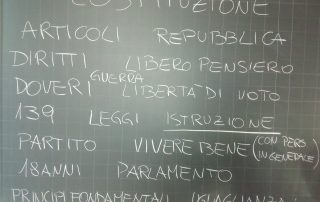 COSTITUZIONE
ARTICOLI REPUBBLICA
DIRITTI LIBERO PENSIERO
GUERRA
DOVERI LIBERTÀ DI VOTO
139 LEGGI ISTRUZIONE
PARTITO VIVERE BENE (CON PERO IN GENERALE)
18 ANNI PARLAMENTO
PRINCIPI FONDAMENTALI UGUAGLIANZA